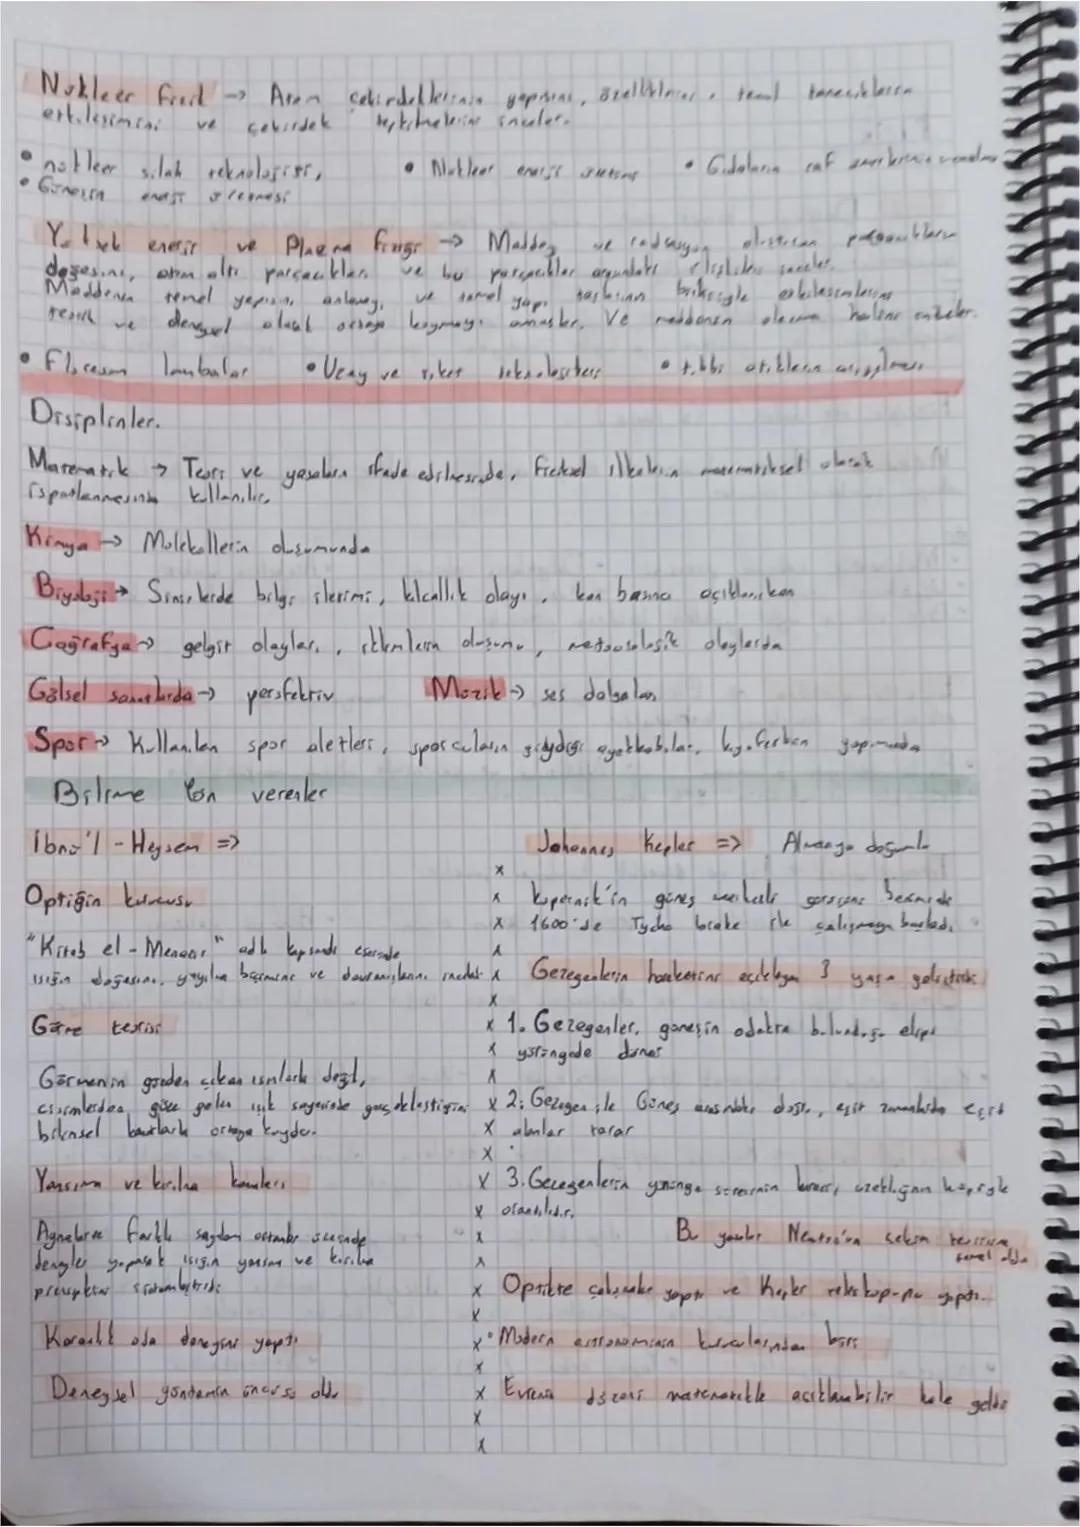 Nükleer fizik → Atom çekirdeklerinin yapısını, özelliklerini, temel taneciklerin
etkileşimini ve çekirdek tepkimelerini inceler.
• nükleer silah teknolojisi, • Nükleer enerji üretimi • Gıdaların raf
• Güneşin enerji üretmesi
Yüksek enerji ve Plazma fiziği → Maddeyi ve radyasyon oluşturan parçacıkların
doğasını, atom altı parçacıkları ve bu parçacıklar arasındaki ilişkileri inceler.
Maddenin temel yapısını anlamayı ve temel yapı taşlarının birbiriyle etkileşimlerini
teorik ve deneysel olarak ortaya koymayı amaçlar. Ve maddenin plazma halini inceler.
• Floresan lambalar • Uzay ve roket teknolojileri • tıbbi atıkların
Disiplinler.
Matematik → Teori ve yasaların ifade edilmesinde, fiziksel ilkelerin matematiksel olarak
ispatlanmasında kullanılır.
Kimya → Moleküllerin oluşumunda
Biyoloji → Sinirlerde bilgi iletimi, kılcallık olayı, kan basıncı açıklanırken
Coğrafya → gelgit olayları, iklimlerin oluşumu, meteorolojik olaylarda
Gölsel sanatlarda → persfektiv Müzik → ses dalgaları
Spor → Kullanılan spor aletleri, sporcuların giydiği ayakkabılar, kıyafetken yapımında
Bilime Yön verenler
İbnü'l - Heysem =>
Optiğin kurucusu
"Kitab el - Menazır" adlı kapsamlı eserinde
ışığın doğasını, yayılma biçimini ve davranışlarını inceledi
Görme teorisi
Görmenin gözden çıkan ışınlarla değil,
cisimlerden göze gelen ışık sayesinde gerçekleştiğini
bilimsel kanıtlarla ortaya koydu.
Yansıma ve kırılma kanunları
Aynalarve farklı saydam ortamlar üzerinde
deneyler yaparak ışığın yansıma ve kırılma
prensipleri sistemleştirdi
Karanlık oda deneyini yaptı
Deneysel yöntemin öncüsü oldu
Johannes Kepler => Almanya doğumlu
Kopernik'in güneş merkezli görüşünü benimsedi
1600'de Tycho brahe ile çalışmaya başladı
Gezegenlerin hareketini açıklayan 3 yasa geliştirdi
1. Gezegenler, güneşin odakta bulunduğu elips
yörüngede döner
2. Gezegen ile Güneş arasındaki doğru, eşit zamanlarda eşit
alanlar tarar
3. Gezegenlerin yörünge süresinin karesi, uzaklığının küpüyle
orantılıdır.
Bu yasalar Newton'un çekim teorisine
temel oldu
Optikte çalışmalar yaptı ve Kepler teleskop-nu yaptı.
• Modern astronominin kurucularından biri
Evrenin düzeni matematikle açıklanabilir hale geldi